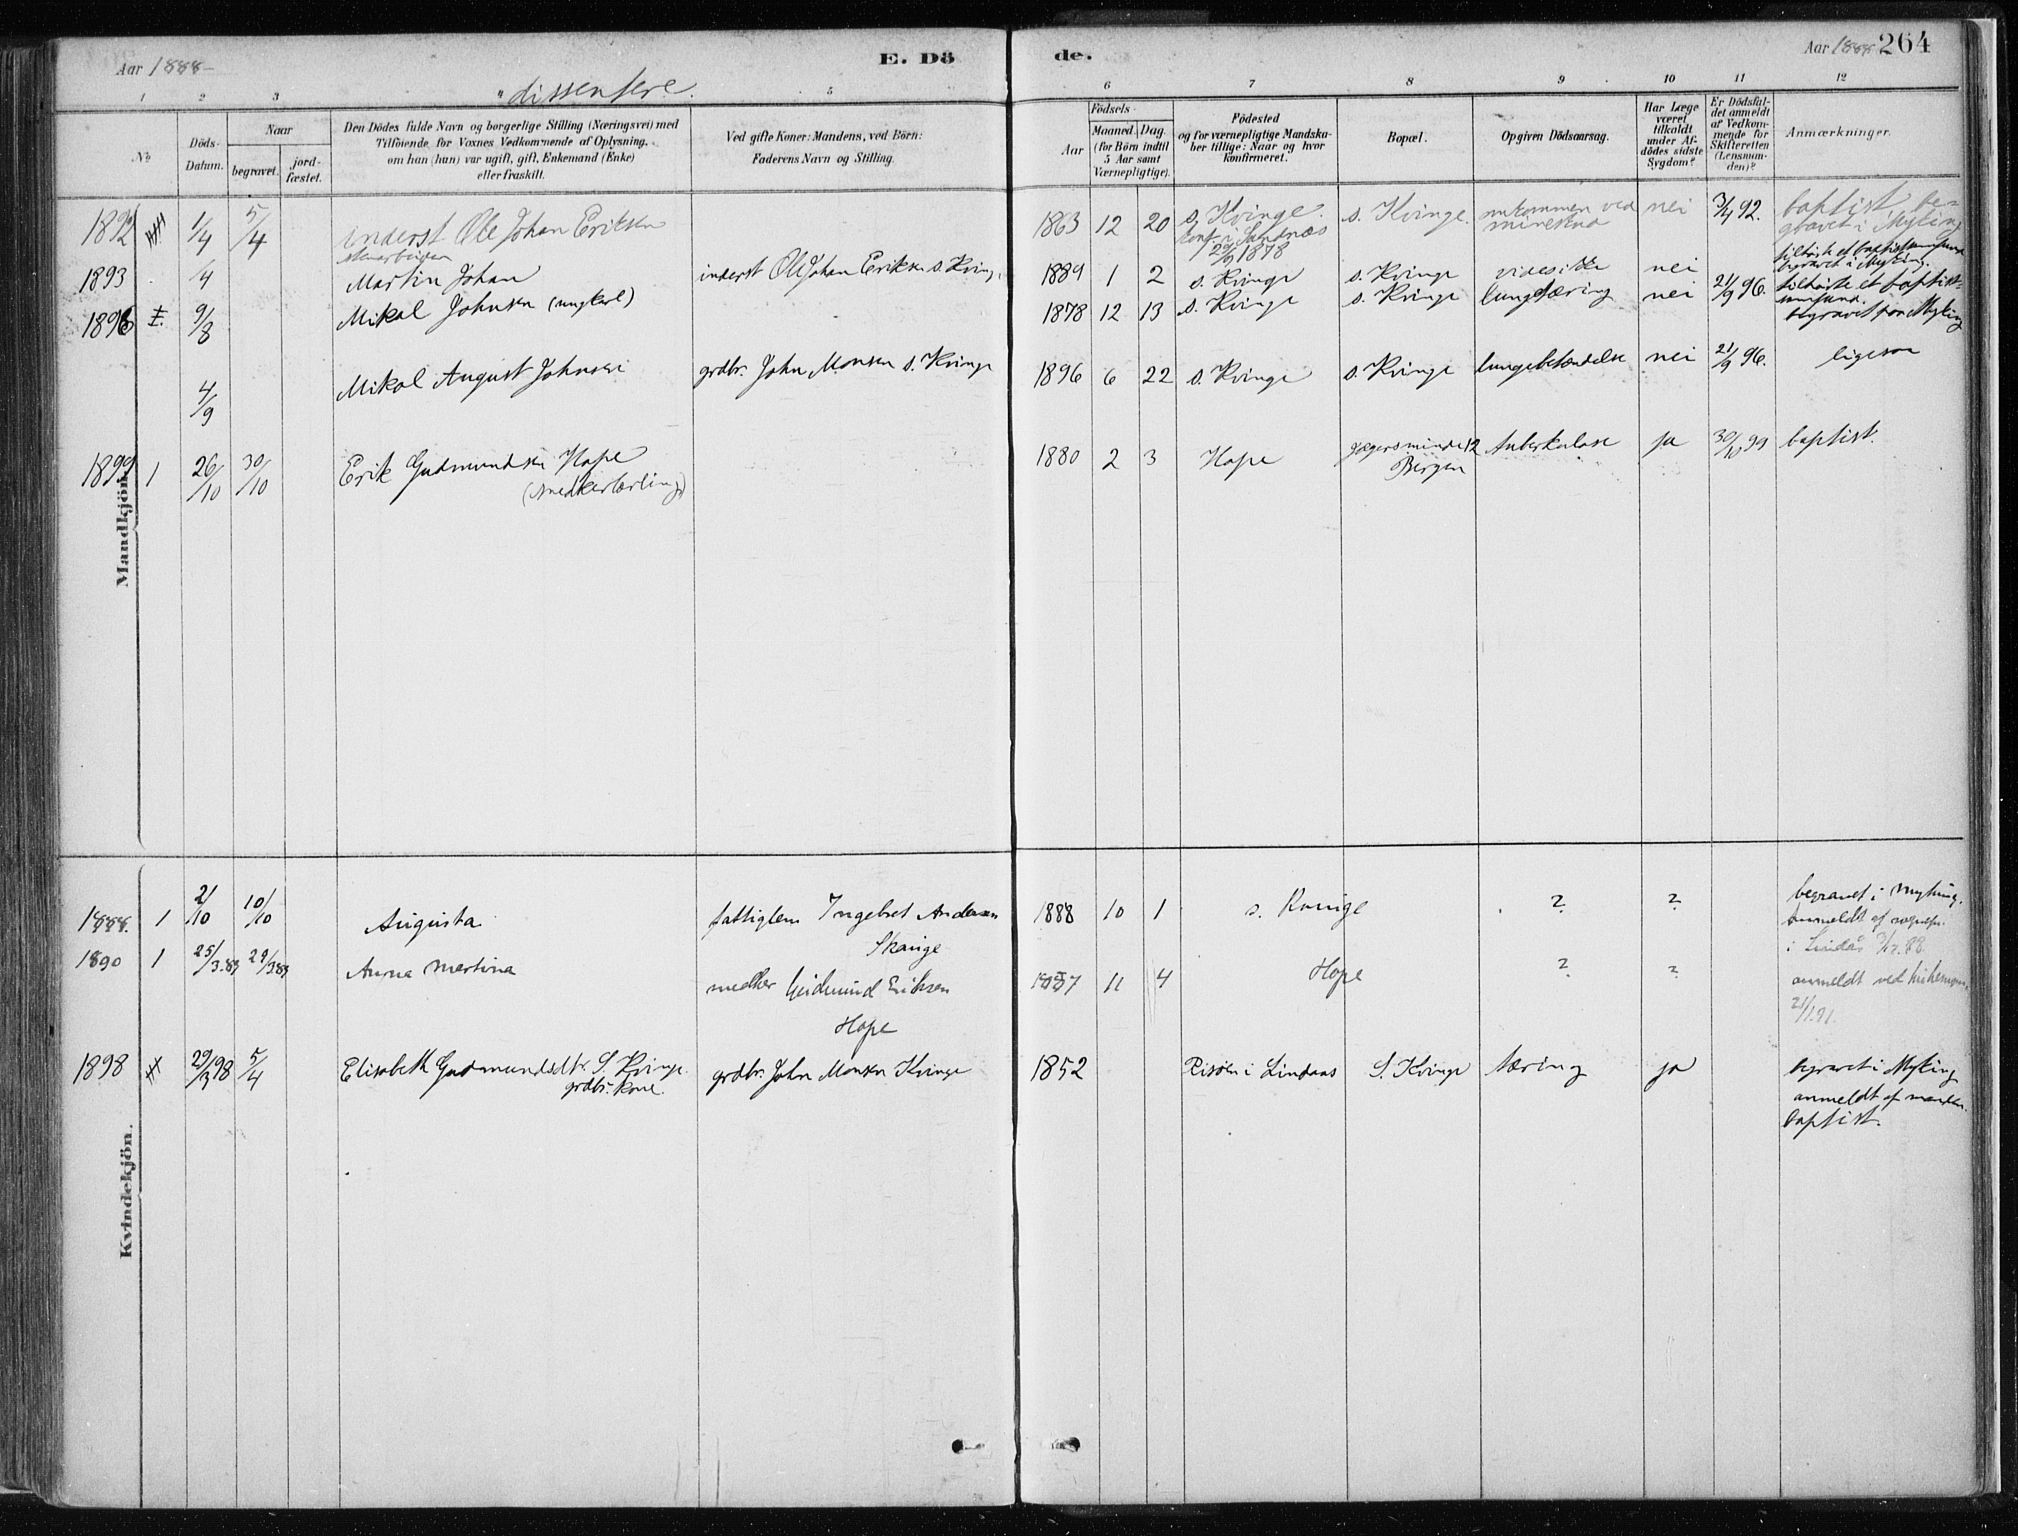 Aar 1888
E. Dö
de.
Aar 1888 264
dissentere.
1 2 3 5 6 7 8 9 10 11 12
No
Döds-
Datum.
Naar
begravet.
jord-
fæstet.
Den Dödes fulde Navn og borgerlige Stilling (Næringsvei) med
Tilföiende, for Voxnes Vedkommende af Oplysning,
om han (hun) var ugift, gift, Enkemand (Enke)
eller fraskilt.
Ved gifte Koner: Mandens, ved Börn:
Faderens Navn og Stilling.
Födsels-
Aar
Maaned. Dag.
(for Börn indtil
5 Aar samt
Værnepligtige).
Födested
og for værnepligtige Mandska-
ber tillige: Naar og hvor
konfirmeret.
Bopæl.
Opgiven Dödsaarsag.
Har Læge
været
tilkaldt
under Af-
dödes sidste
Sygdom?
Er Dödsfal-
det anmeldt
af Vedkom-
mende for
Skifteretten
(Lensman-
den)?
Anmærkninger.
Mandkjön.
1892 1/4 5/4 inderst Ole Johan Eriksen 1863 12 20 s. Kvinge. s. Kvinge. omkommen ved nei 3/4 92. baptist be-
konf. i Sandnæs mineskud gravet i Myking
1878
1893 /4 Martin Johan inderst Ole Johan Eriksen s. Kvinge 1889 1 2 s. Kvinge s. Kvinge vides ikke nei
begravet i Myking.
1896 9/8 Mikal Johnsen (ungkarl) 1878 12 13 s. Kvinge s. Kvinge lungetæring nei 21/9 96. tilhørte et baptist-
samfund.
begravet paa Myking
4/9 Mikal August Johnsen grdbr. John Monsen s. Kvinge 1896 6 22 s. Kvinge s. Kvinge lungebetændelse nei 21/9 96. ligesaa
1899 1 26/10 30/10 Erik Gudmundsen Hope 1880 2 3 Hope Jægersminde 12 Tuberkulose ja 30/10 99 baptist.
Bergen
Kvindekjön.
1888. 1 2/10 10/10 Augusta fattiglem Ingebret Andersen 1888 10 1 s. Kvinge ? ? begravet i Myking.
Skauge
i Lindås
1890 1 25/3.89 29/3 89 Anna Martina medker Gudmund Eriksen 11 4 Hope ? ? anmeldt ved
Hope
21/1.91.
1898 29/3 98 5/4 Elisabeth Gudmundsdtr. S. Kvinge grdbr. John Monsen Kvinge 1852 Risøen i Lindaas S. Kvinge tæring ja begravet i Myking
grdbr. kone.
anmeldt af manden.
baptist.